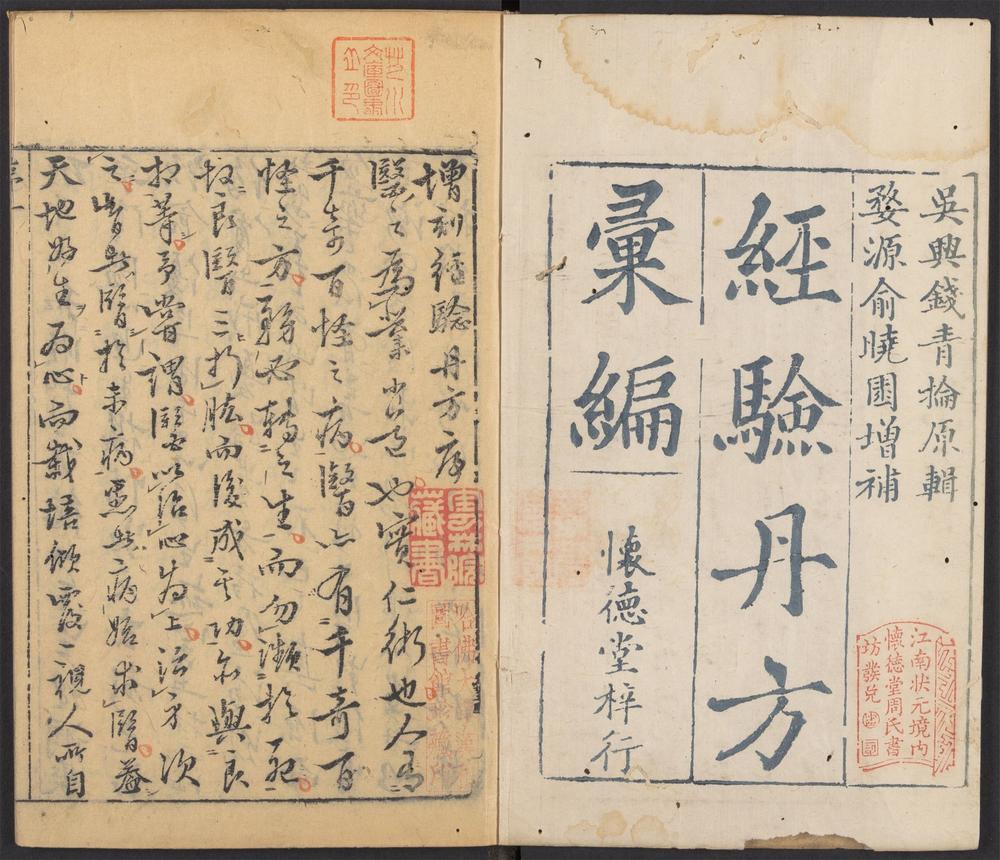 吳興錢青掄原輯
婺源俞曉園增補
經驗丹方
彙編
懷德堂梓行
江南狀元境內
懷德堂周氏書
坊發兌
增刻經驗丹方序
醫之為業 也實仁術也人有
千奇百怪之病醫亦有千奇百
怪之方務必轉之生而勿瀕於死
故良醫三折肱而後成其功亦與良
相等予嘗謂醫必以治心為上治身次
之 醫於未病 病始求醫蓋
天地好生為心而栽培傾覆一視人所自
藏書